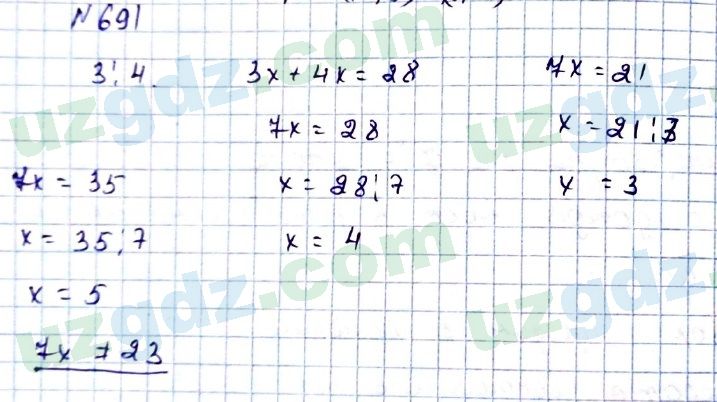 N691
3:4. 3x+4x=28 7x=21
7x=28 x=21:7
7x=35 x=28:7 x=3
x=35:7 x=4
x=5
7x≠23
uzgdz.com
uzgdz.com
uzgdz.com
uzgdz.com